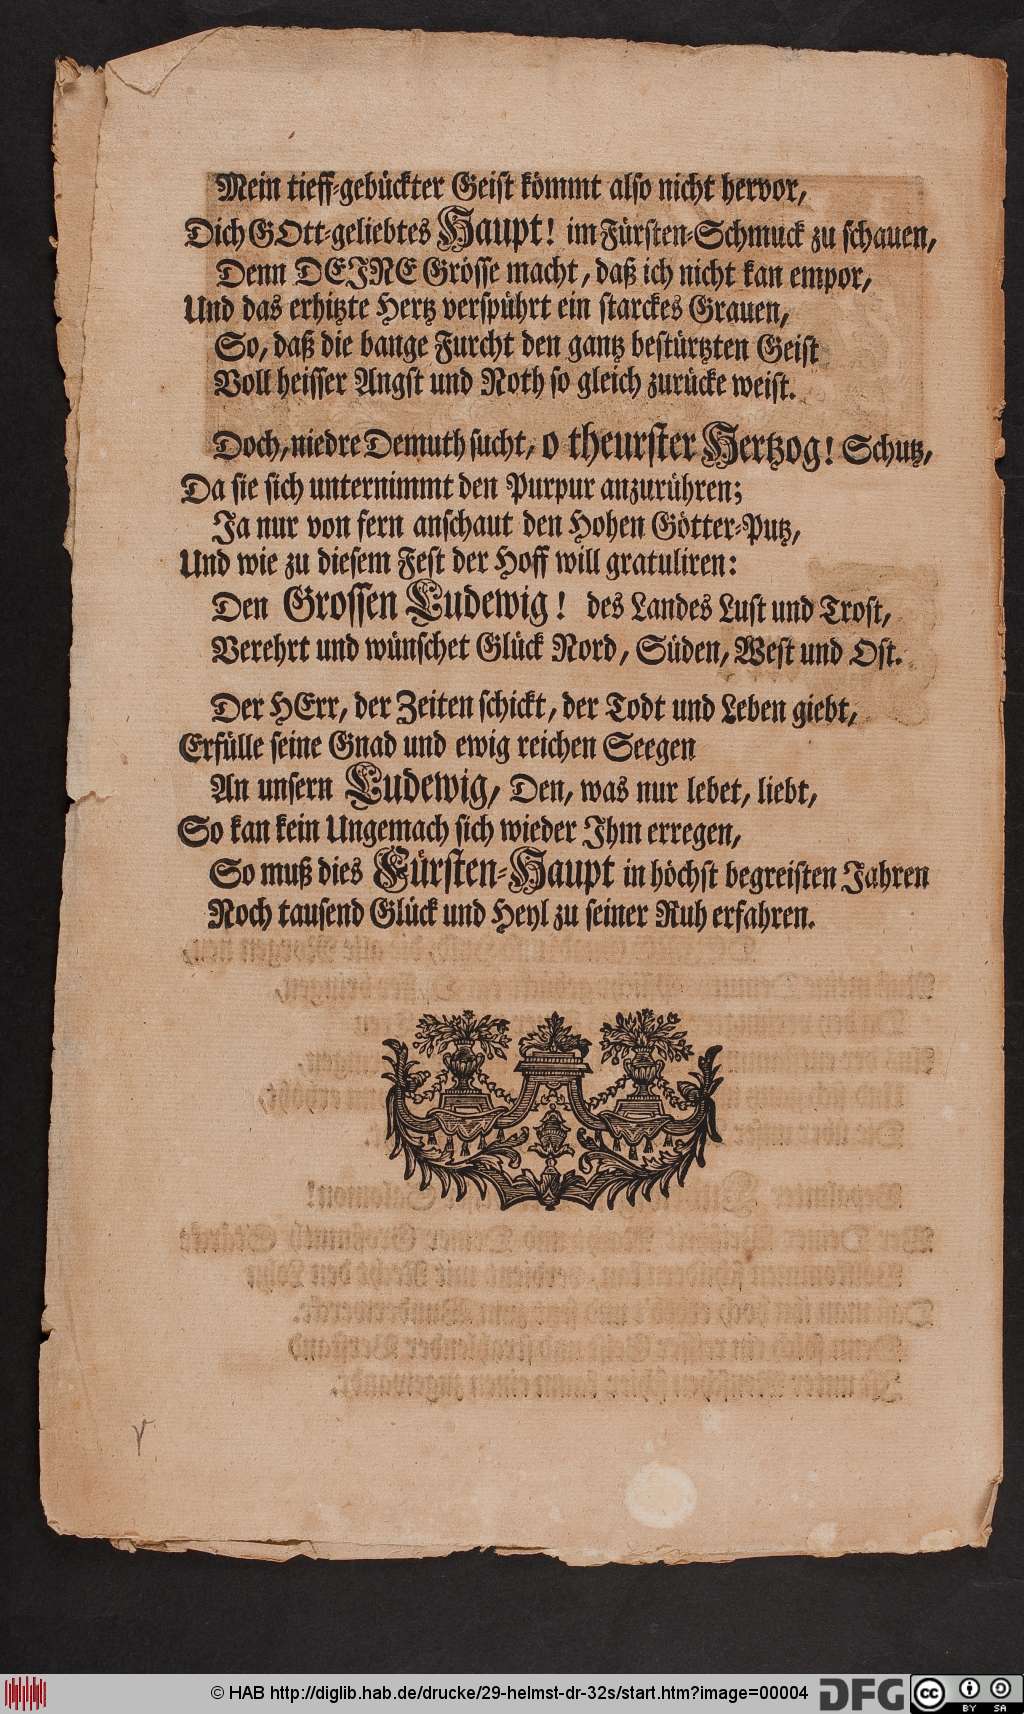 Mein tieff-gebückter Geist kömmt also nicht hervor,
Dich GOtt-geliebtes Haupt! im Fürsten-Schmuck zu schauen,
Denn DEINE Grösse macht, daß ich nicht kan empor,
Und das erhitzte Hertz verspührt ein starckes Grauen,
So, daß die bange Furcht den gantz bestürtzten Geist
Voll heisser Angst und Noth so gleich zurücke weist.
Doch, niedre Demuth sucht, o theurster Hertzog! Schutz,
Da sie sich unternimmt den Purpur anzurühren;
Ja nur von fern anschaut den Hohen Götter-Putz,
Und wie zu diesem Fest der Hoff will gratuliren:
Den Grossen Ludewig! des Landes Lust und Trost,
Verehrt und wünschet Glück Nord, Süden, West und Ost.
Der HErr, der Zeiten schickt, der Todt und Leben giebt,
Erfülle seine Gnad und ewig reichen Seegen
An unsern Ludewig, Den, was nur lebet, liebt,
So kan kein Ungemach sich wieder Ihm erregen,
So muß dies Fürsten-Haupt in höchst begreisten Jahren
Noch tausend Glück und Heyl zu seiner Ruh erfahren.
© HAB http://diglib.hab.de/drucke/29-helmst-dr-32s/start.htm?image=00004 DFG cc BY SA